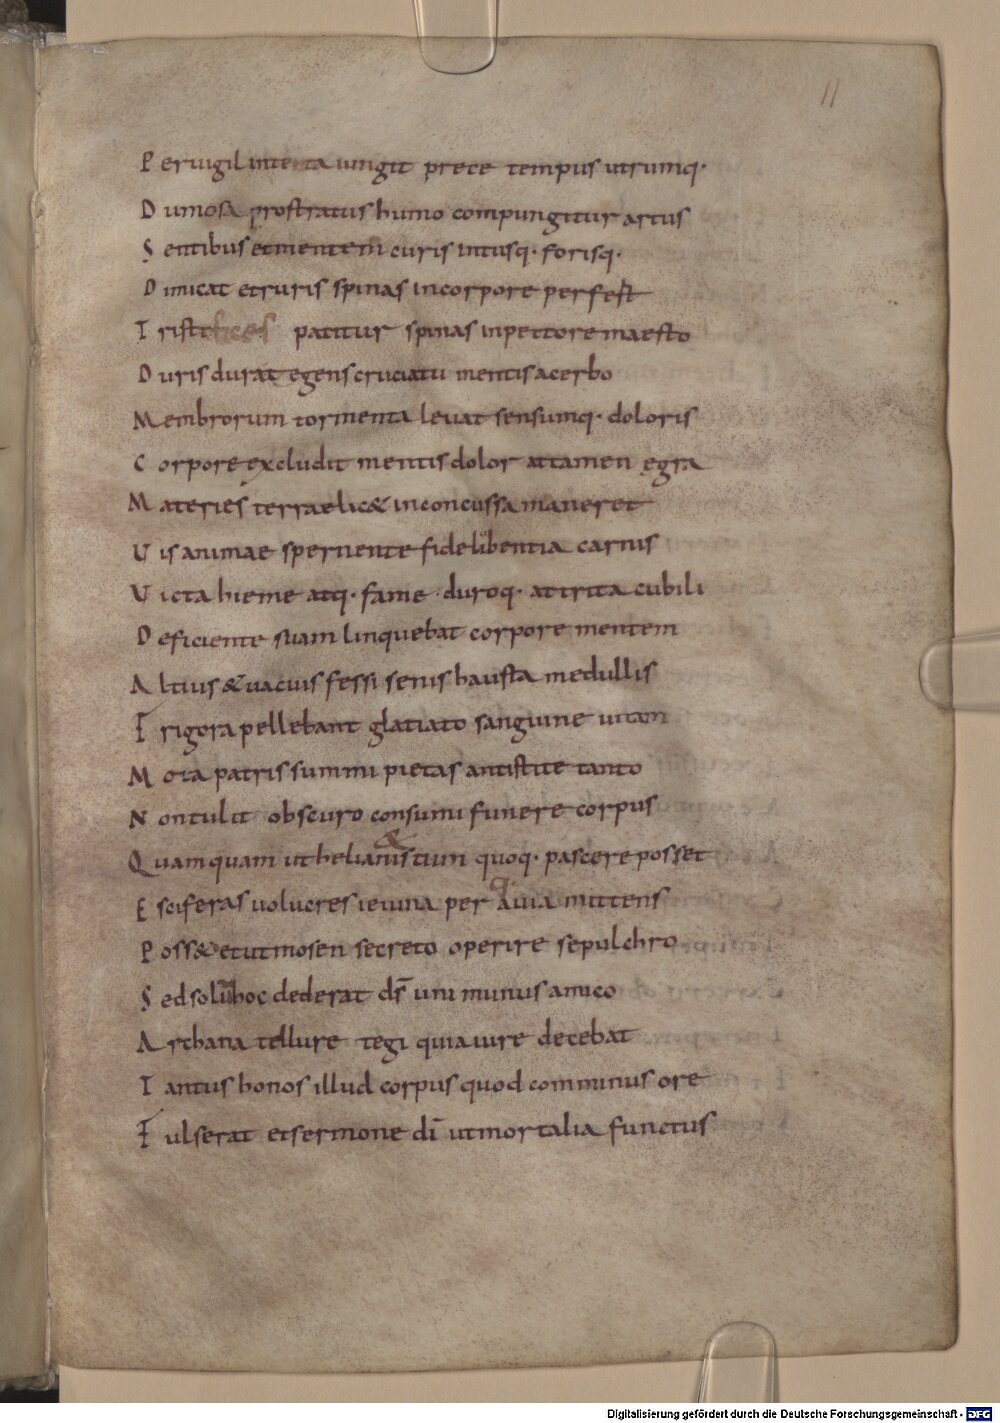 11
Peruigil intenta iungit prece tempus utrumq·
Dumosa prostratus humo compungitur artus
Sentibus et mentem curis intusq· forisq·
Dimicat et ruris spinas in corpore perfest
Triste patitur spinas inpectore maesto
Duris durat egens cruciatu mentis acerbo
Membrorum tormenta leuat sensumq· doloris
Corpore excludit mentis dolor attamen ęgra
Materies terrae lic& inconcussa maneret
Uis animae spernente fide libentia carnis
Uicta hieme atq· fame · duroq· attrita cubili
Deficiente suam linquebat corpore mentem
Altius & uacuis fessi senis hausta medullis
Frigora pellebant glatiato sanguine uitam
Mota patris summi pietas antistite tanto
Non tulit obscuro consumi funere corpus
Quamquam ut helian istum quoq· pascere posset
&
Esciferas uolucres ieiuna per auia mittens
Poss& et ut mosen secreto operire sepulchro
Sed solū hoc dederat ds̄ uni munus amico
Archana tellure tegi quia iure decebat
Tantus honos illud corpus quod comminus ore
Fulserat et sermone dī ut mortalia functus
Digitalisierung gefördert durch die Deutsche Forschungsgemeinschaft - DFG